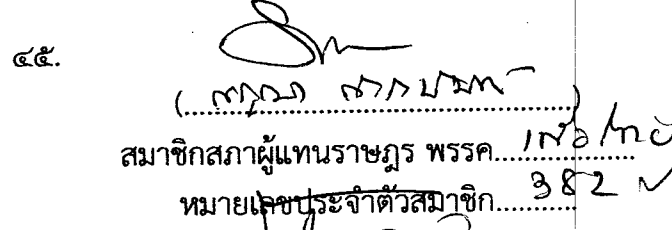 ๔๕.
สมาชิกสภาผู้แทนราษฎร พรรค เพื่อไทย
หมายเลขประจำตัวสมาชิก 382